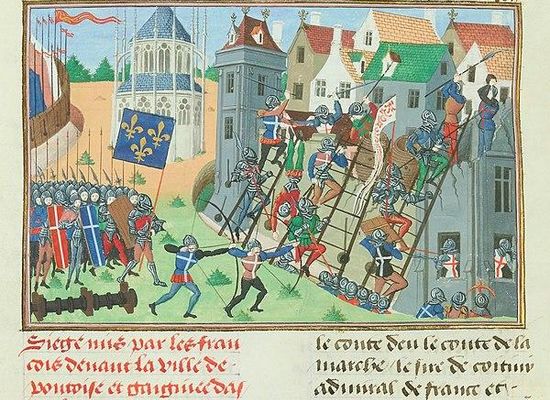 Siege mis par les fran
cois devant la ville de
pontoise et gaignee das
le conte deu le conte de la
marche / le sire de coitiuy
admiral de france et